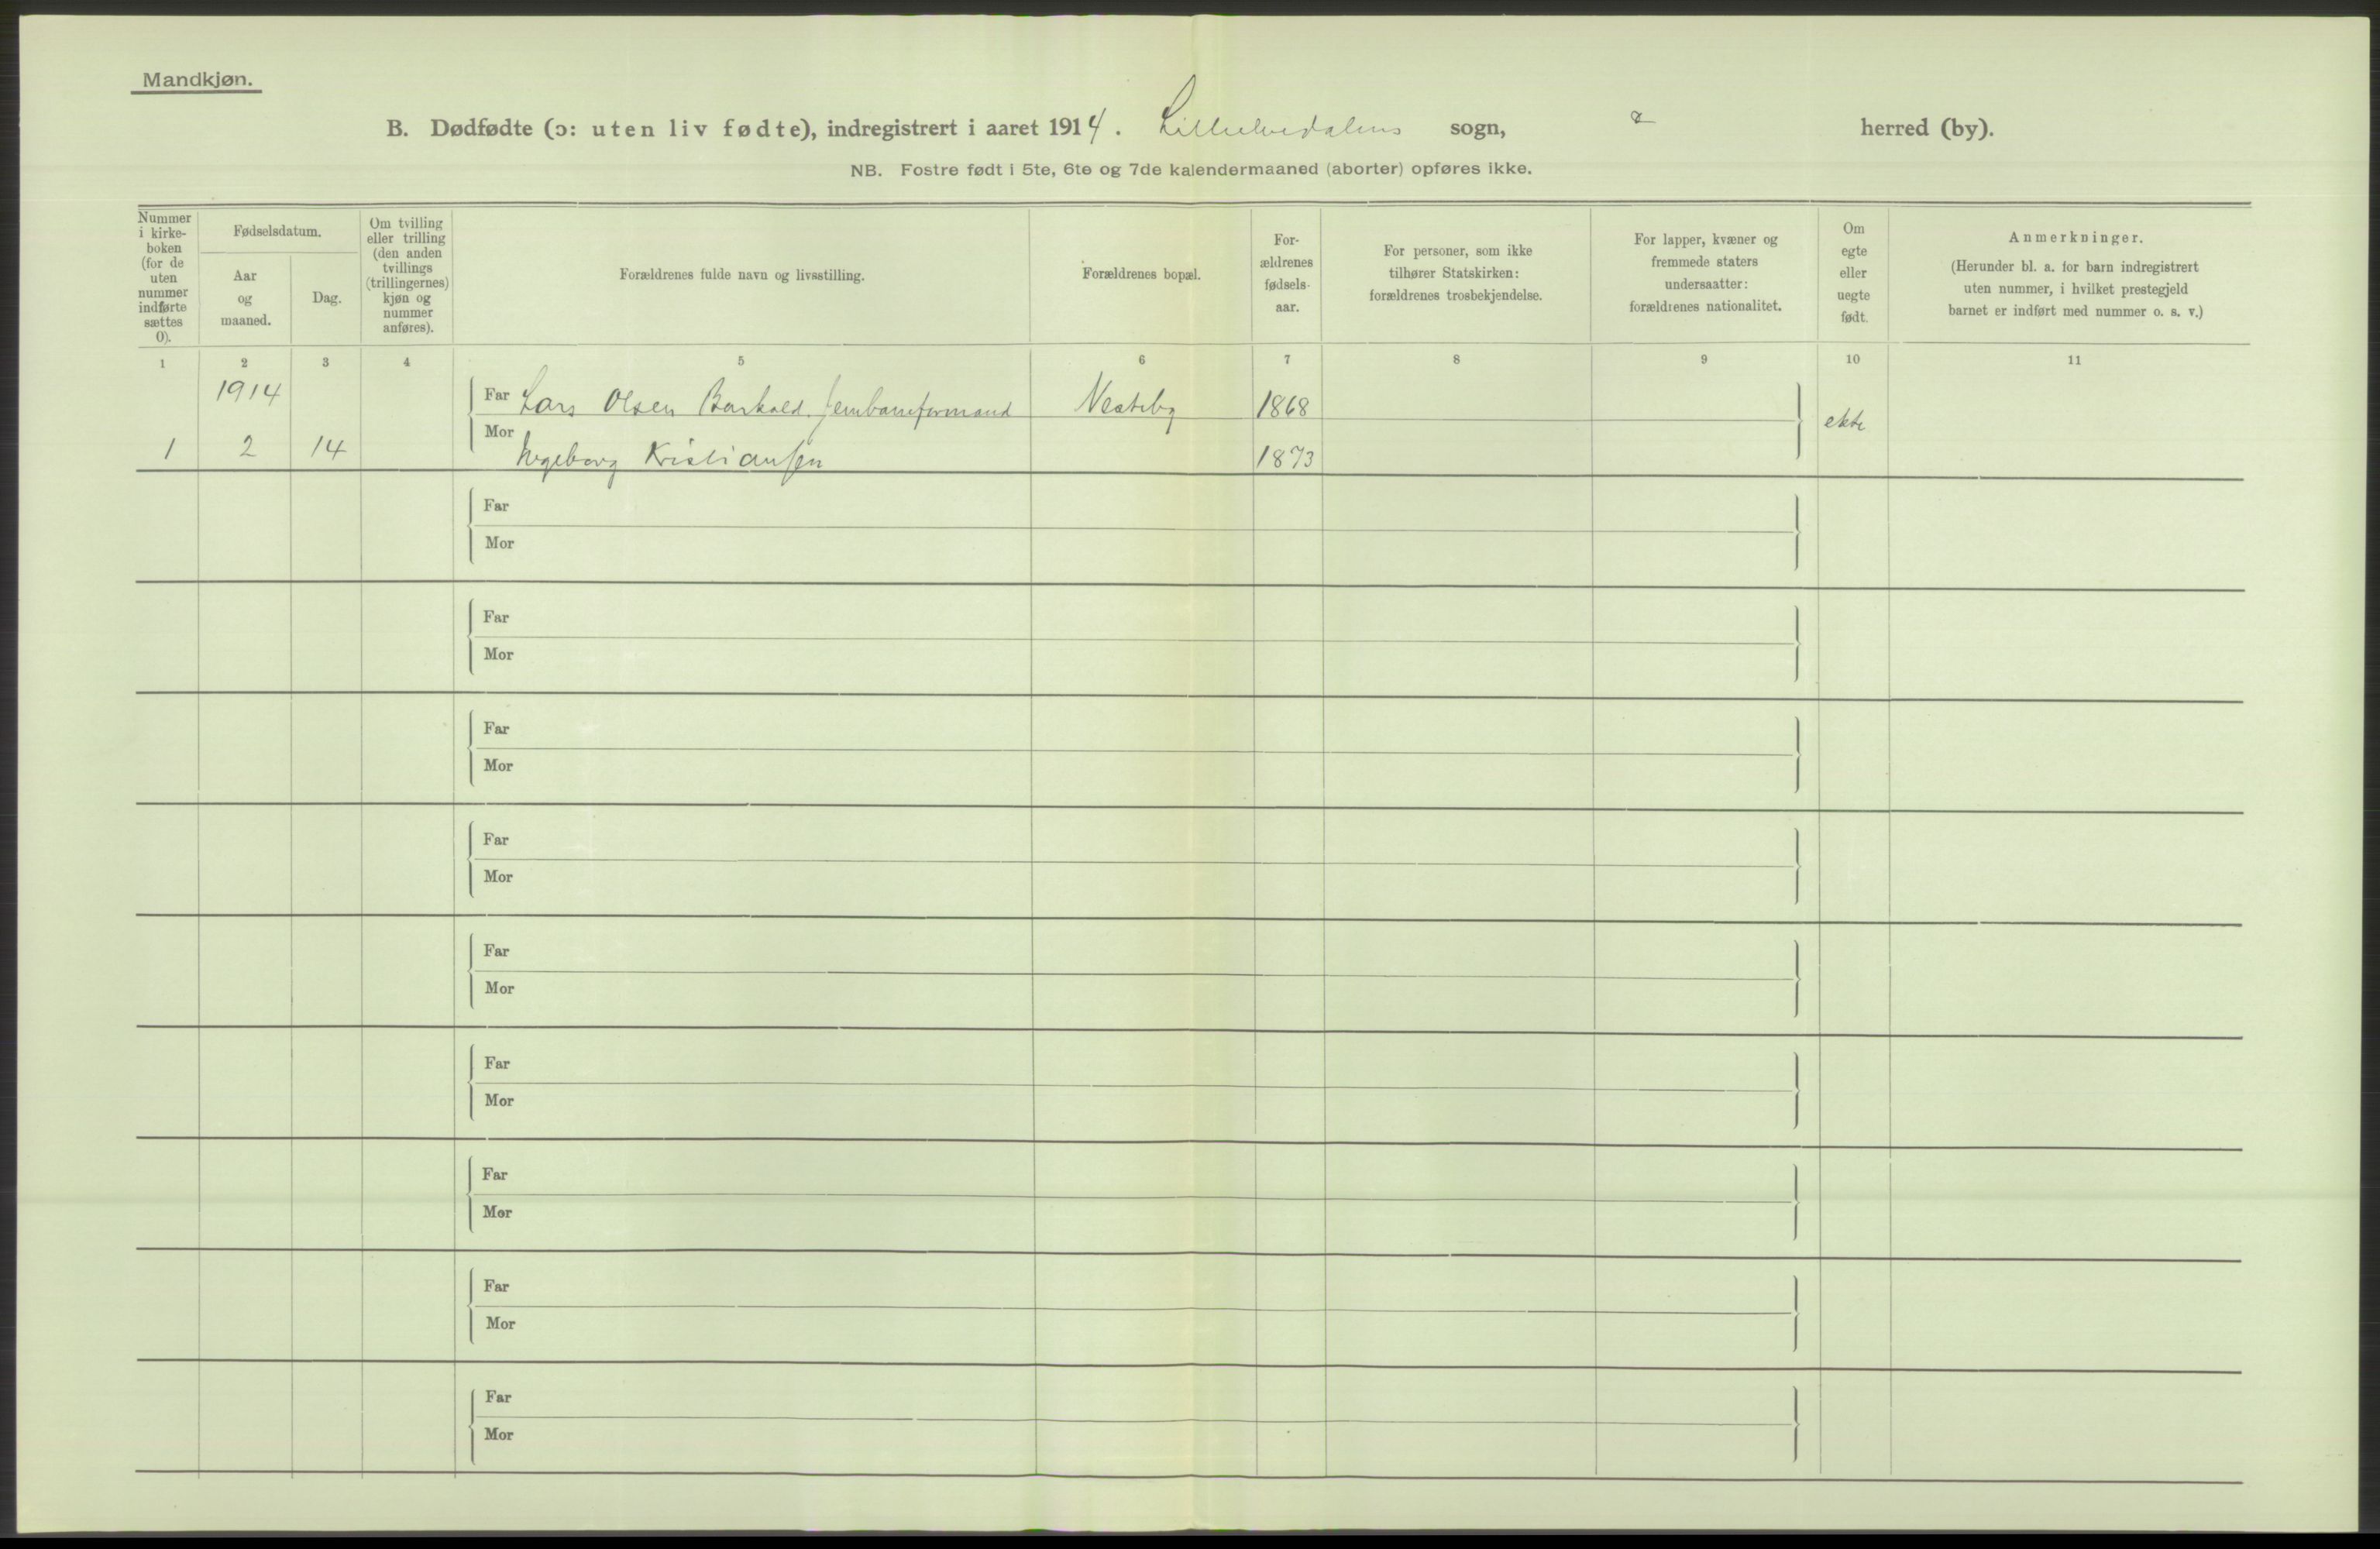 Mandkjøn.
B. Dødfødte (ɔ: uten liv fødte), indregistrert i aaret 1914. Lilleelvedalens sogn, herred (by).
NB. Fostre født i 5te, 6te og 7de kalendermaaned (aborter) opføres ikke.
Nummer i kirke-boken (for de uten nummer indførte sættes 0).
Fødselsdatum.
Aar og maaned.
Dag.
Om tvilling eller trilling (den anden tvillings (trillingernes) kjøn og nummer anføres).
Forældrenes fulde navn og livsstilling.
Forældrenes bopæl.
For-ældrenes fødsels-aar.
For personer, som ikke tilhører Statskirken: forældrenes trosbekjendelse.
For lapper, kvæner og fremmede staters undersaatter: forældrenes nationalitet.
Om egte eller uegte født.
Anmerkninger.
(Herunder bl. a. for barn indregistrert uten nummer, i hvilket prestegjeld barnet er indført med nummer o. s. v.)
1 2 3 4 5 6 7 8 9 10 11
1914 Far Lars Olsen Barkald. Jernbaneformand 1868
ekte
1 2 14 Mor Ingeborg Kristiansen 1873
Far
Mor
Far
Mor
Far
Mor
Far
Mor
Far
Mor
Far
Mor
Far
Mor
Far
Mor
Far
Mor